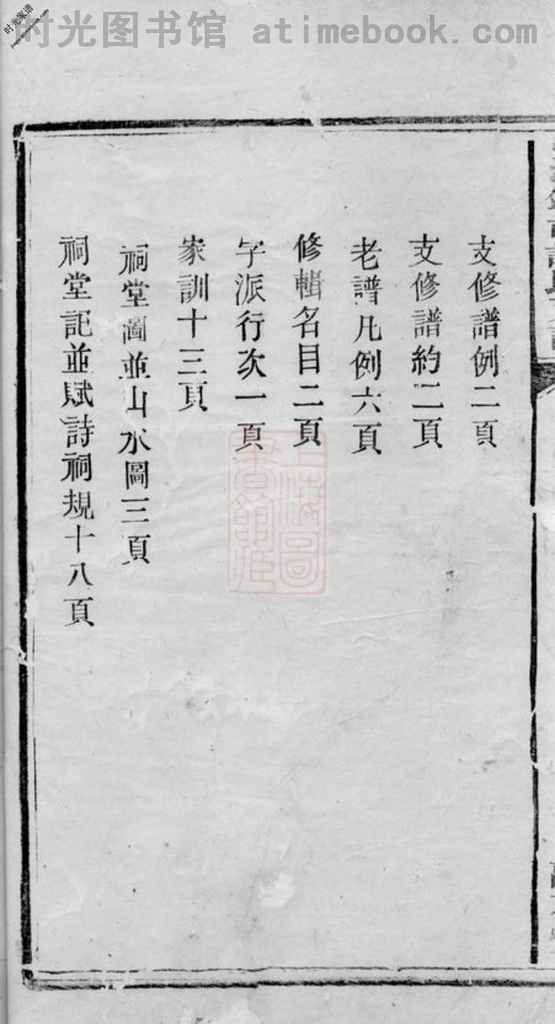 时光图书馆 atimebook.com
支修譜例二頁
支修譜約二頁
老譜凡例六頁
修輯名目二頁
字派行次一頁
家訓十三頁
祠堂圖並山水圖三頁
祠堂記並賦詩祠規十八頁